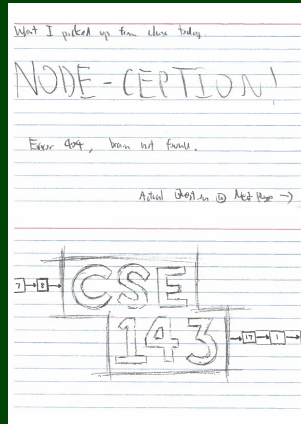 What I picked up from class today
NODE-CEPTION!
Error 404, brain not found.
Actual Question @ Next page →
7 → 8 → CSE
143 → 17 → 1 →